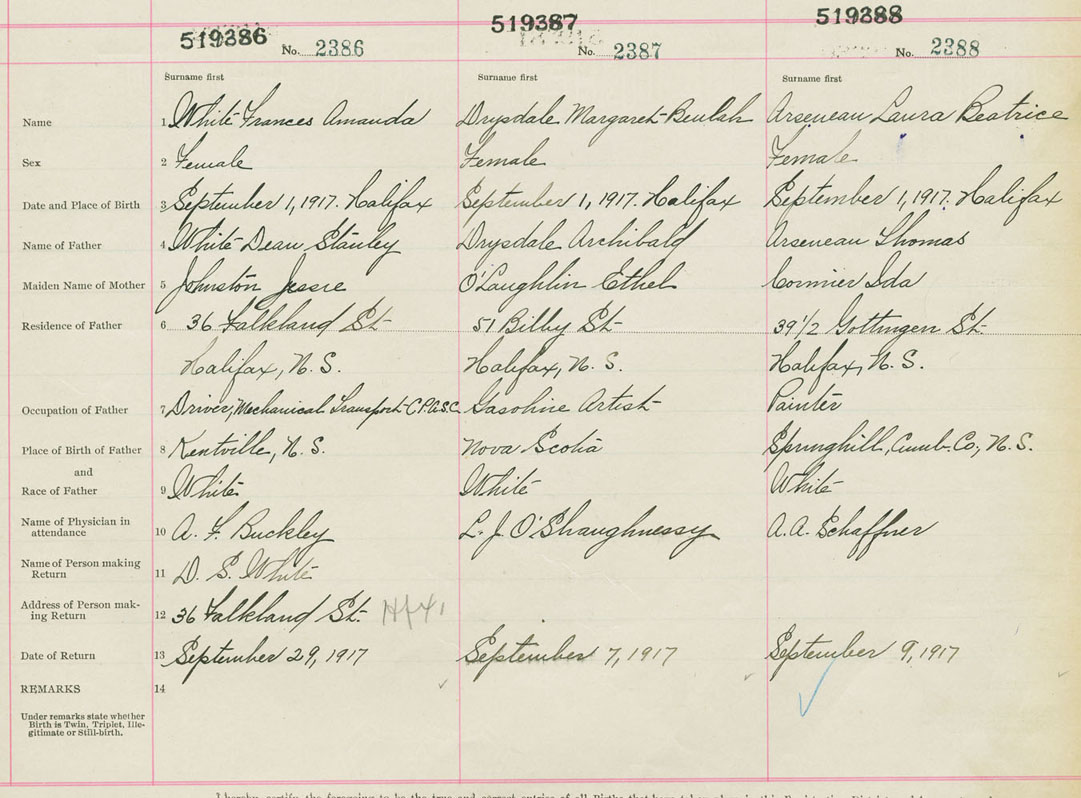 519386 519387 519388
No. 2386 No. 2387 No. 2388
Surname first Surname first Surname first
Name 1 White Frances Amanda Drysdale Margaret Beulah Arseneau Laura Beatrice
Sex 2 Female Female Female
Date and Place of Birth 3 September 1, 1917. Halifax September 1, 1917. Halifax September 1, 1917. Halifax
Name of Father 4 White Dean Stanley Drysdale Archibald Arseneau Thomas
Maiden Name of Mother 5 Johnston Jessie O'Laughlin Ethel Cormier Ida
Residence of Father 6 36 Falkland St. 51 Bilby St. 39 1/2 Gottingen St.
Halifax, N. S. Halifax, N. S. Halifax, N. S.
Occupation of Father 7 Driver, Mechanical Transport C.P.A.S.C. Gasoline Artist Painter
Place of Birth of Father 8 Kentville, N. S. Nova Scotia Springhill, Cumb. Co., N. S.
and
Race of Father 9 White White White
Name of Physician in
attendance 10 A. F. Buckley L. J. O'Shaughnessy A. A. Schaffner
Name of Person making
Return 11 D. S. White
Address of Person mak-
ing Return 12 36 Falkland St. Hfx.
Date of Return 13 September 29, 1917 September 7, 1917 September 9, 1917
REMARKS 14
Under remarks state whether
Birth is Twin, Triplet, Ille-
gitimate or Still-birth.
I hereby certify the foregoing to be the true and correct entries of all Births that have taken place in this Registration District